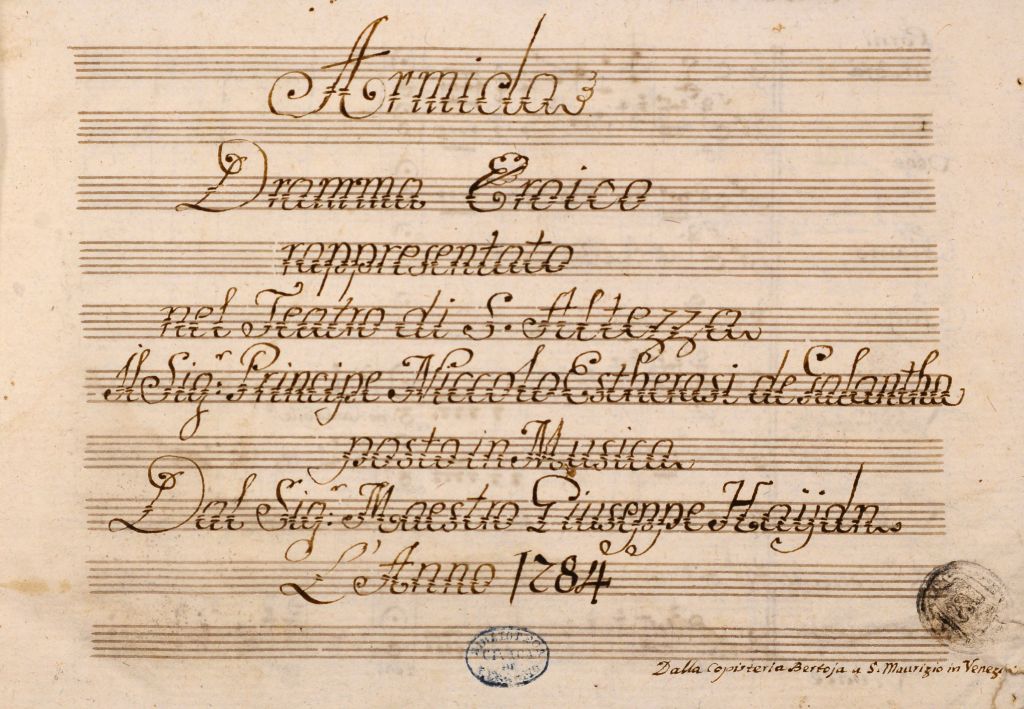 Armida
Dramma Eroico
rappresentato
nel Teatro di S. Altezza
Il Sig.r Principe Niccolo Estherasi de Galantha
posto in Musica
Dal Sig.r Maestro Giuseppe Haÿdn.
L'Anno 1784
BIBLIOTECA
CIVICA
DI
Dalla Copisteria Bertoja a S. Maurizio in Venezia